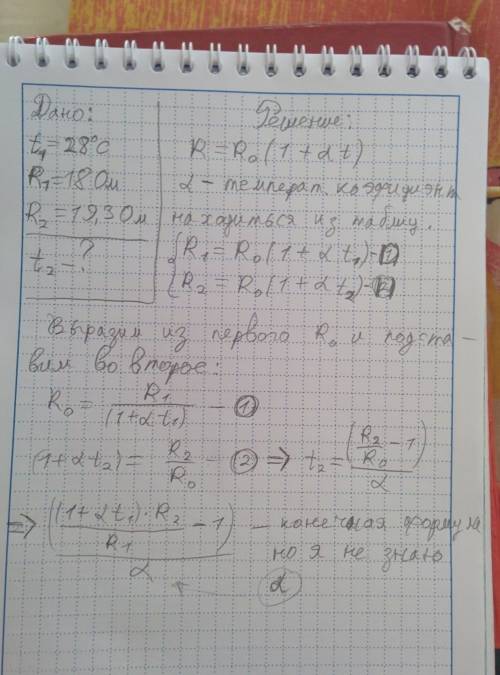 Дано:
t₁=28°C
R₁=18 Ом
R₂=19,3 Ом
t₂ - ?
Решение:
R = R₀(1+αt)
α - температ. коэфициент
находиться из таблиц.
{R₁ = R₀(1+αt₁) - ①
{R₂ = R₀(1+αt₂) - ②
Выразим из первого R₀ и подста-
вим во второе:
R₀ = R₁/(1+αt₁) - ①
(1+αt₂) = R₂/R₀ - ② ⇒ t₂ = (R₂/R₀ - 1)/α
⇒ ((1+αt₁)·R₂/R₁ - 1)/α - конечная формула
но я не знаю
α